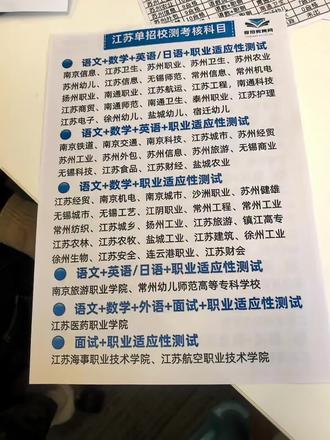 江苏单招校测考核科目
语文+数学+英语/日语+职业适应性测试
南京信息、江苏卫生、苏州职业、苏州卫生、苏州农业
苏州幼儿、江苏信息、无锡师范、常州信息、常州机电
扬州职业、南通职业、江苏航运、江苏工程、南通科技
江苏商贸、南通师范、南通卫生、泰州职业、江苏护理
江苏电子、徐州幼儿、盐城幼儿、宿迁幼儿
语文+数学+英语+职业适应性测试
南京铁道、南京交通、南京科技、江苏城市、苏州经贸
苏州工业、苏州外包、苏州信息、苏州旅游、无锡商业
无锡科技、江苏食品、江苏财经、盐城农业
语文+数学+职业适应性测试
江苏经贸、南京机电、南京城市、沙洲职业、苏州健雄
无锡城市、无锡工艺、江阴职业、常州工程、常州工业
常州纺织、江苏城乡、扬州工业、江苏旅游、镇江高专
江苏农林、江苏农牧、盐城工业、江苏建筑、徐州工业
徐州生物、江苏安全、连云港职业、江苏财会
语文+英语/日语+职业适应性测试
南京旅游职业学院、常州幼儿师范高等专科学校
语文+数学+外语+面试+职业适应性测试
江苏医药职业学院
面试+职业适应性测试
江苏海事职业技术学院、江苏航空职业技术学院